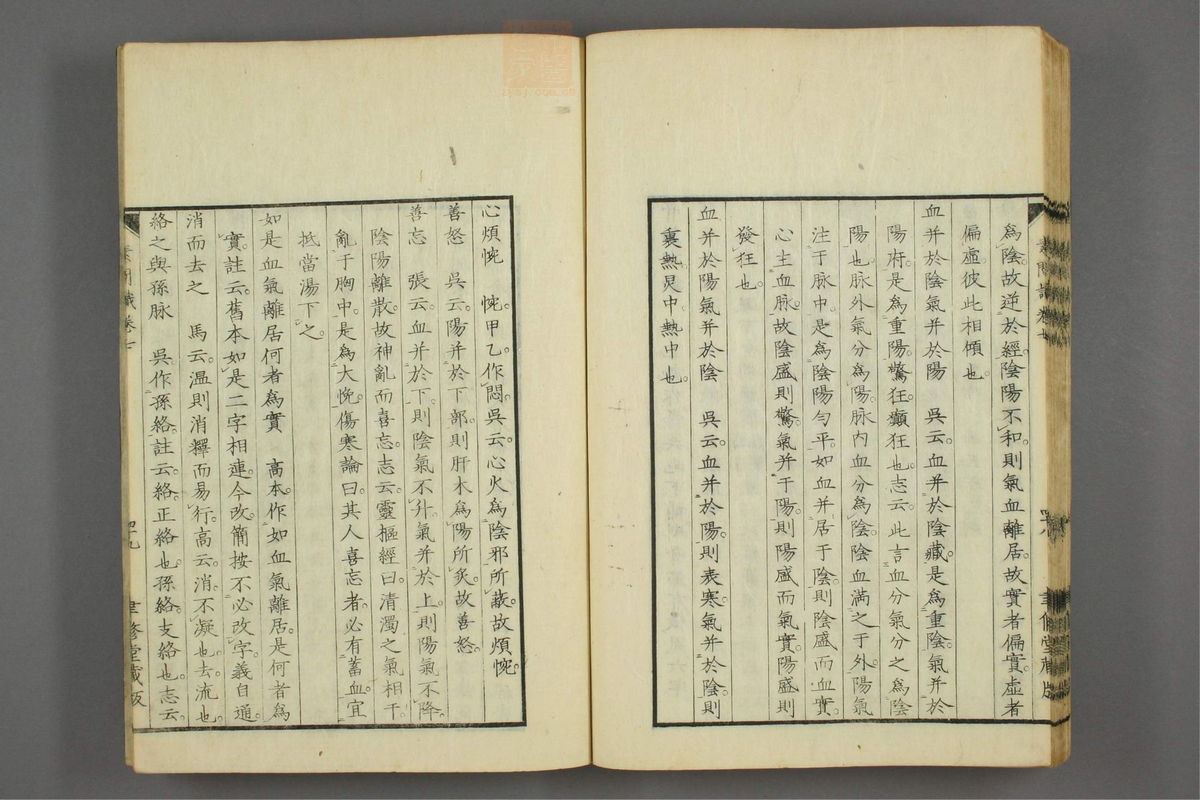 爲陰故逆於經。陰陽不和。則氣血離居。故實者偏實。虛者
偏虛。彼此相傾也。
血并於陰氣并於陽　吳云。血并於陰藏。是爲重陰。氣并於
陽府。是爲重陽。驚狂。癲狂也。志云。此言血分氣分之爲陰
陽也。脉外氣分爲陽。脉內血分爲陰。陰血滿之于外。陽氣
注于脉中。是爲陰陽勻平。如血并居于陰。則陰盛而血實。
心主血脉。故陰盛則驚。氣并于陽。則陽盛而氣實。陽盛則
發狂也。
血并於陽氣并於陰　吳云。血并於陽。則表寒。氣并於陰。則
裏熱。炅中。熱中也。
心煩惋　惋。甲乙。作悶。吳云。心火爲陰邪所蔽。故煩惋。
善怒　吳云。陽并於下部。則肝木爲陽所炙。故善怒。
善忘　張云。血并於下。則陰氣不升。氣并於上。則陽氣不降。
陰陽離散。故神亂而喜忘。志云。靈樞經曰。清濁之氣相干。
亂于胸中。是爲大悗。傷寒論曰。其人喜忘者。必有蓄血。宜
抵當湯下之。
如是血氣離居何者爲實　高本。作如血氣離居。是何者爲
實。註云。舊本如是二字相連。今改。簡按不必改字。義自通。
消而去之　馬云。溫則消釋而易行。高云。消。不凝也。去。流也。
絡之與孫脉　吳。作孫絡。註云。絡。正絡也。孫絡。支絡也。志云。
素問識卷七
四九
聿修堂藏版